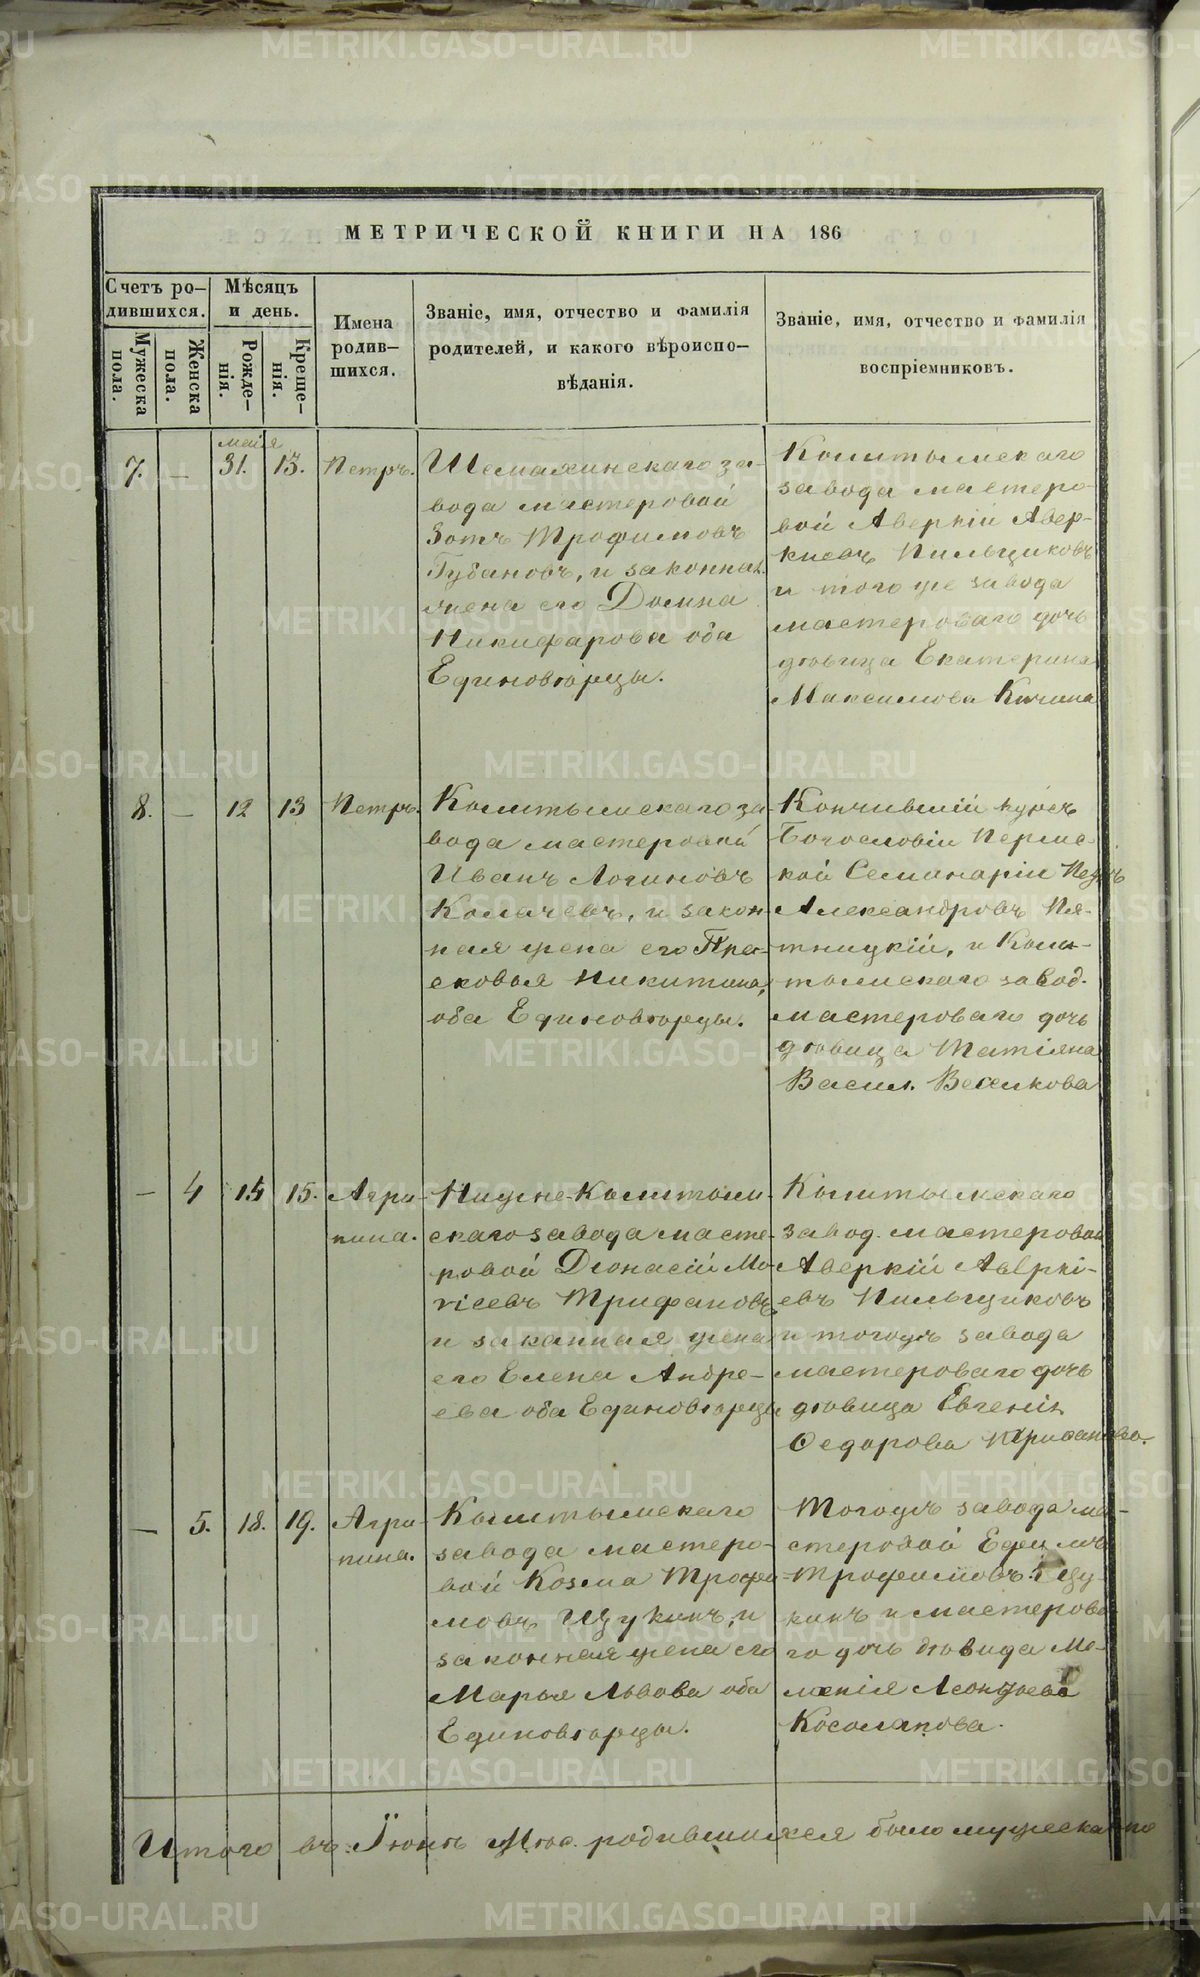 МЕТРИЧЕСКОЙ КНИГИ НА 186
Счетъ ро-
дившихся.
Мужеска
пола.
Женска
пола.
Мѣсяцъ
и день.
Рожде-
нія.
Креще-
нія.
Имена
родив-
шихся.
Званіе, имя, отчество и фамилія
родителей, и какого вѣроиспо-
вѣданія.
Званіе, имя, отчество и фамилія
воспріемниковъ.
мая
7. — 31. 13. Петръ.
Шемахинскаго за-
вода мастеровой
Зотъ Трофимовъ
Губановъ, и законная
жена его Домна
Никифарова оба
Единовѣрцы.
Кыштымскаго
завода мастеро-
вой Аверкій Авер-
киевъ Пильщиковъ
и того же завода
мастероваго дочь
дѣвица Екатерина
Максимова
8. — 12 13 Петръ.
Кыштымскаго за-
вода мастеровой
Иванъ Логиновъ
Колачевъ, и закон-
ная жена его Пра-
сковья Никитина,
оба Единовѣрцы.
Кончившій курсъ
Богословіи Пермс-
кой Семинаріи Петръ
Александровъ Пя-
тницкій, и Кыш-
тымскаго завод.
мастероваго дочь
дѣвица Татіяна
Васил. Веселкова
— 4 14 15. Агри-
пина.
Нижне-Кыштым-
скаго завода масте-
ровой Дионасій Мо-
исевъ Трифановъ,
и заканная жена
его Елена Андре-
ева оба Единовѣрцы
Кыштымскаго
завод. мастеровой
Аверкій Аверкі-
евъ Пильщиковъ
и тогожъ завода
мастероваго дочь
дѣвица Евгенія
Ѳедорова
— 5. 18. 19. Агри-
пина.
Кыштымскаго
завода мастеро-
вой Козма Трофи-
мовъ Щукинъ, и
законная жена его
Марья Львова оба
Единовѣрцы.
Тогожъ завода ма-
стеровой Ефимъ
Трофимовъ Щу-
кинъ и мастерова-
го дочь дѣвица Ме-
ланія Леонтьева
Косолапова.
Итого въ Іюнѣ Мѣс. родившихся было мужеска по
METRIKI.GASO-URAL.RU